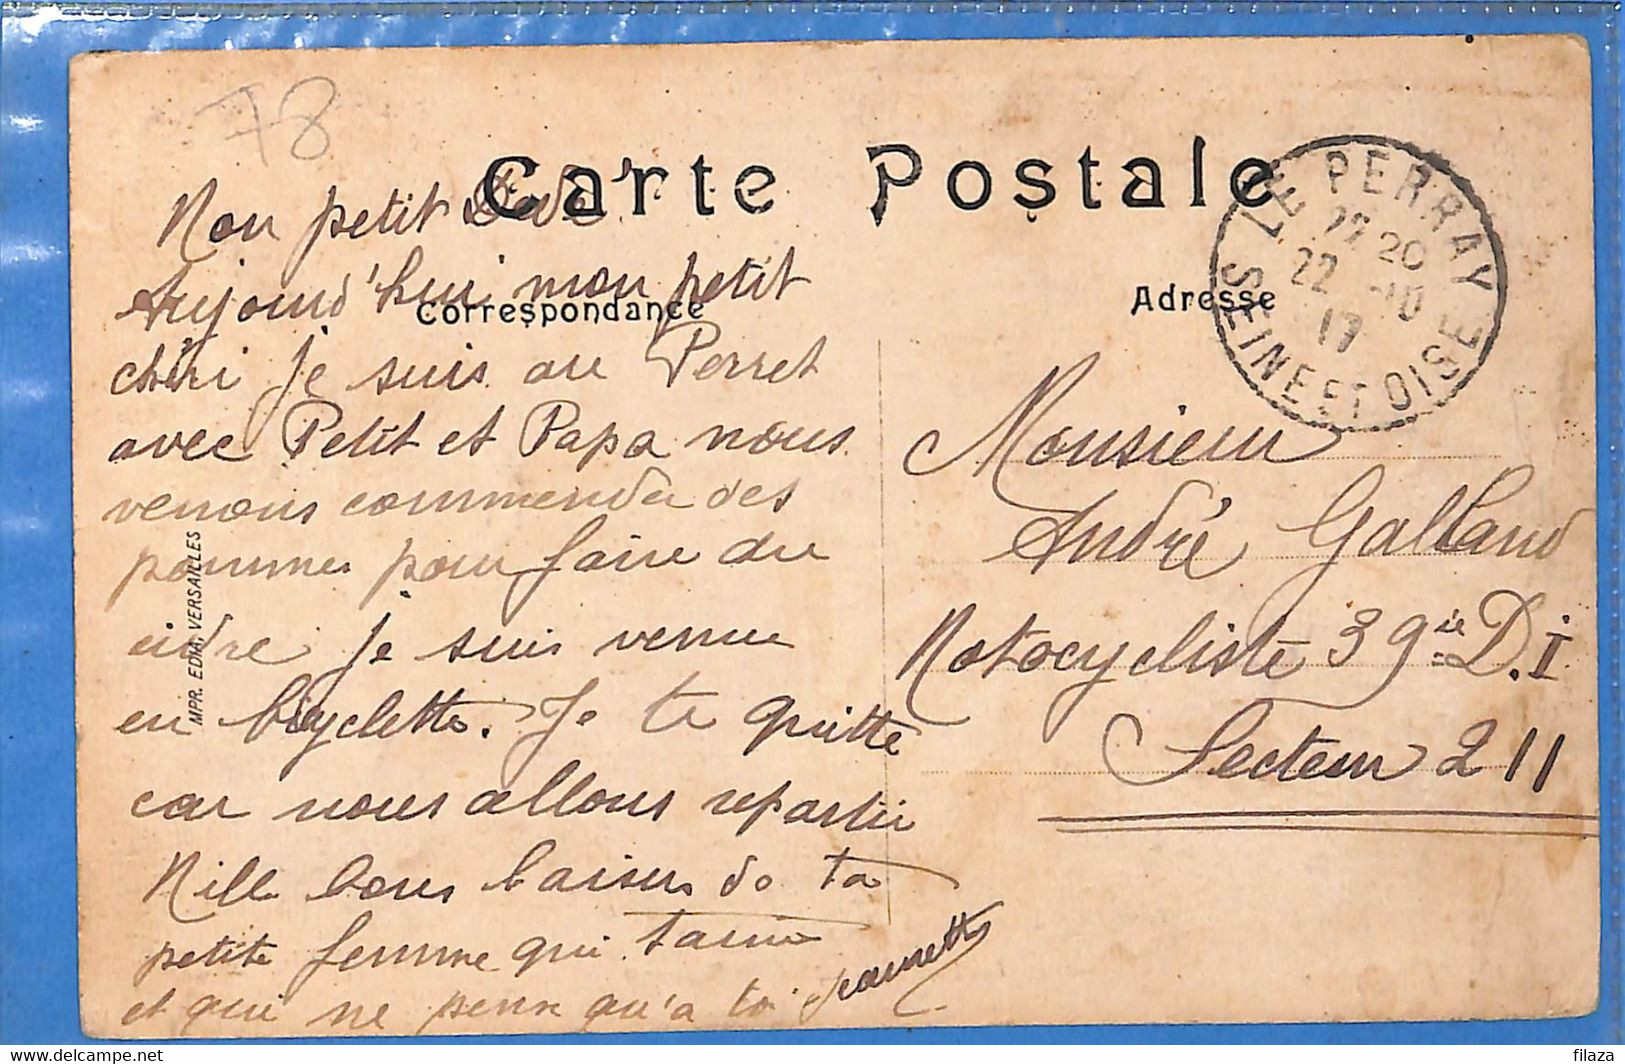 78
Carte Postale
Correspondance
Adresse
LE PERRAY
22 20
22 -10
17
SEINE ET OISE
Mon petit Dédé
Aujourd'hui mon petit
chéri je suis au Perret
avec Petit et Papa nous
venons commender des
pommes pour faire du
cidre je suis venue
en bicyclette. Je te quitte
car nous allons repartir
Mille bons baisers de ta
petite femme qui t'aime
et qui ne pense qu'a toi Jeannette
Monsieur
André Galland
Motocycliste 39ie D.I
Secteur 211
MPR. EDIA, VERSAILLES
filaza